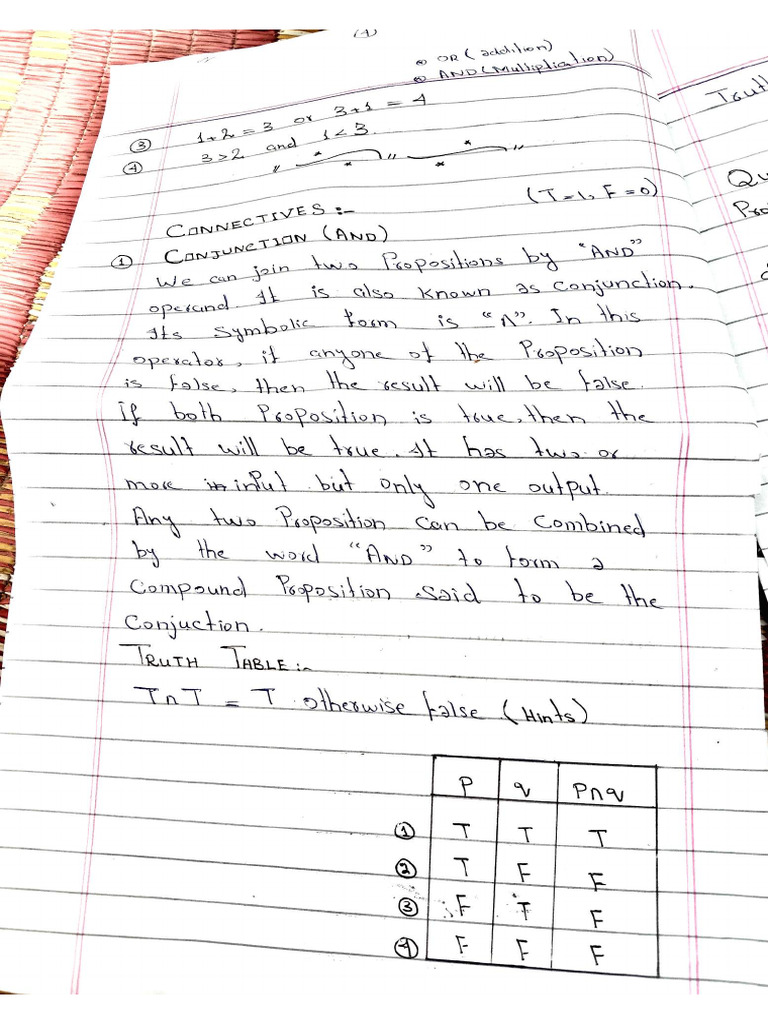 (4)
OR (addition)
AND (Multiplication)
③ 1+2 = 3 or 3+1 = 4
④ 3>2 and 1<3.
(T=1, F=0)
CONNECTIVES :-
① CONJUNCTION (AND)
We can join two Propositions by "AND"
operand. It is also known as conjunction.
Its symbolic form is "∧". In this
operator, if anyone of the Proposition
is false, then the result will be false.
If both Proposition is true, then the
result will be true. It has two or
more input but only one output.
Any two Proposition can be combined
by the word "AND" to form a
compound Proposition said to be the
Conjuction.
TRUTH TABLE :-
T∩T = T otherwise false (Hints)
P q P∩q
① T T T
② T F F
③ F T F
④ F F F
Qu
Pro